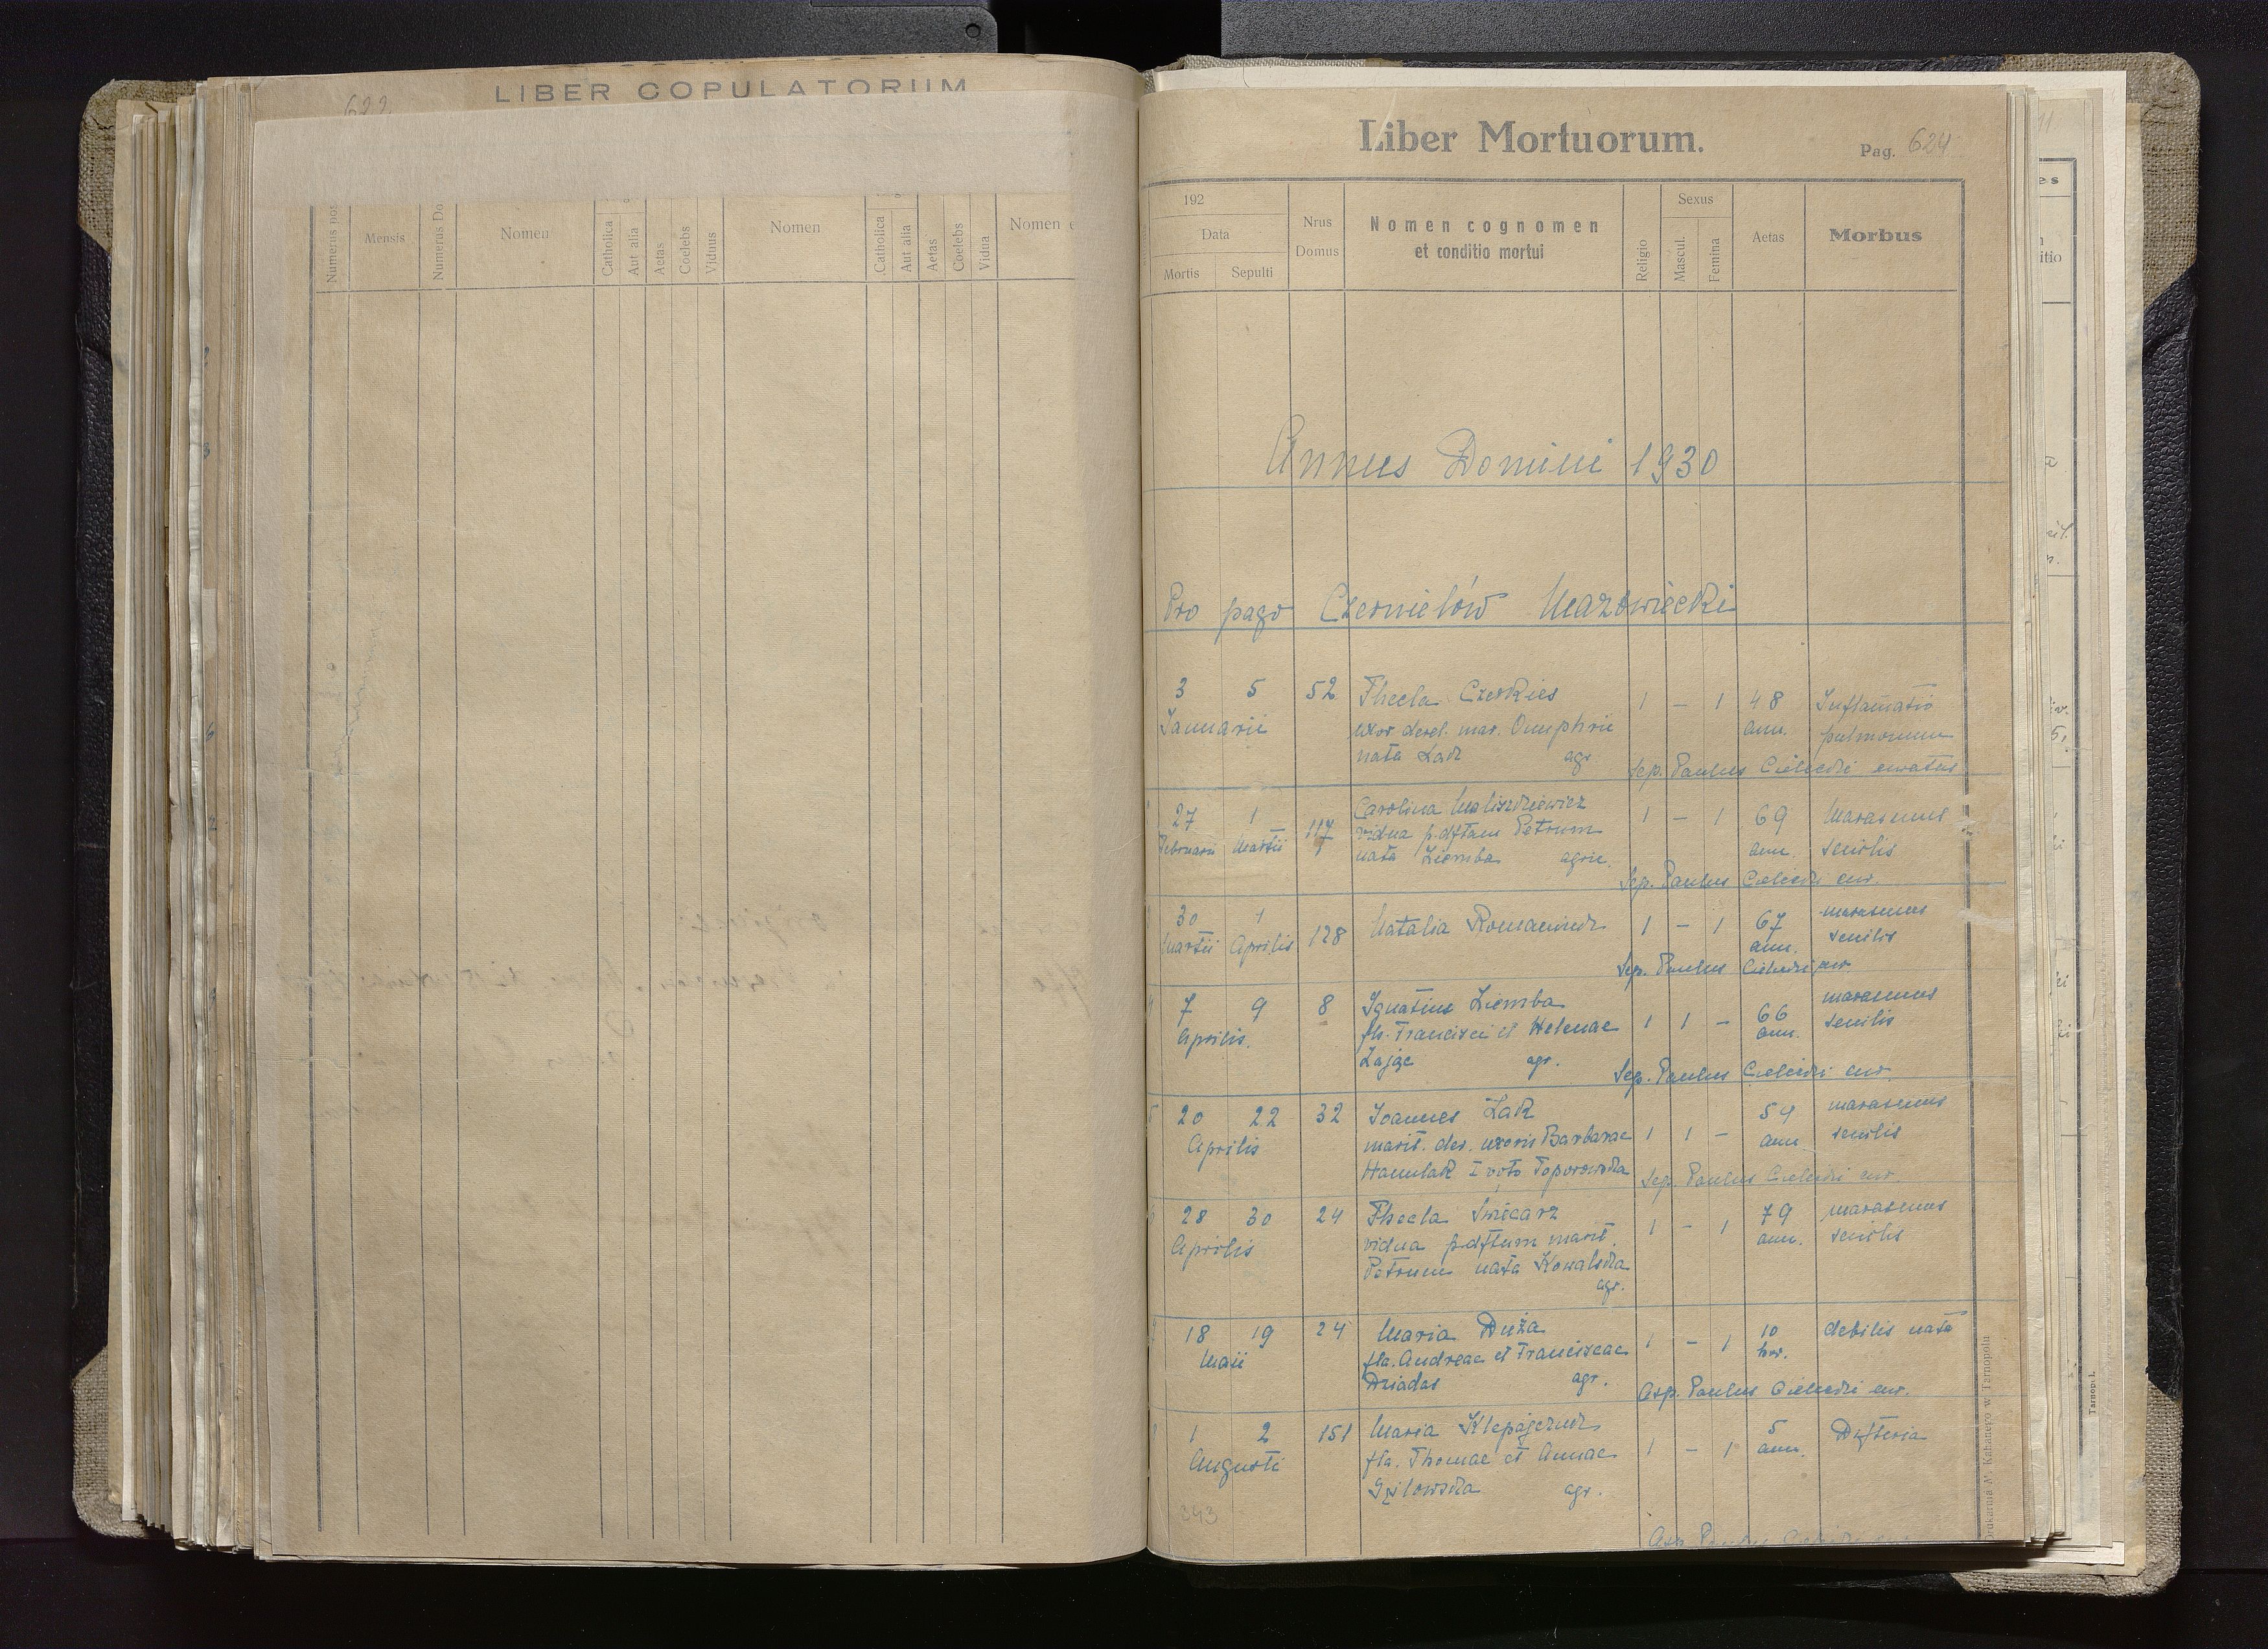 622
LIBER COPULATORIUM
Mensis
Nomen
Catholica
Aut alia
Aetas
Coelebs
Viduus
Nomen
Catholica
Aut alia
Aetas
Coelebs
Vidua
Nomen
Liber Mortuorum.
Pag. 624
192
Data
Mortis Sepulti
Nrus Domus
Nomen cognomen
et conditio mortui
Religio
Sexus
Mascul.
Femina
Aetas
Morbus
Annus Domini 1930
Pro pago Czernielów Mazowiecki
3 5 52 Thecla Czerkies 1 – 1 48 Inflamatio
Januarii uxor derel. mar. Onuphrii ann. pulmonum
nata Łak agr
Sep. Paulus Cielecki curatus
27 1 117 Carolina Maliszkiewicz 1 – 1 69 Marasmus
Februarii Martii vidua p. dftum Petrum ann. senilis
nata Ziemba agric.
Sep. Paulus Cielecki cur.
30 1 128 Natalia 1 – 1 67 marasmus
Martii Aprilis ann. senilis
Sep. Paulus Cielecki cur
7 9 8 Ignatius Ziemba 1 1 – 66 marasmus
Aprilis. fls. Francisci et Helenae ann. senilis
Zając agr.
Sep. Paulus Cielecki cur.
20 22 32 Joannes Łak 1 1 – 54 marasmus
Aprilis marit. der. uxoris Barbarae ann senilis
Hamulak I voto Toporowska
Sep. Paulus Cielecki cur.
28 30 24 Thecla 1 – 1 79 marasmus
Aprilis vidua p. dftum marit. ann. senilis
Petrum nata Kowalska
agr.
18 19 24 Maria Duża 1 – 1 10 debilis nata
Maii fla. Andreae et Franciscae hor.
Dziadas agr.
Asp. Paulus Cielecki cur.
1 2 151 Maria Klepajczuk 1 – 1 5 Difteria
Augusti fla. Thomae et Annae ann.
agr.
343
Tarnopol.